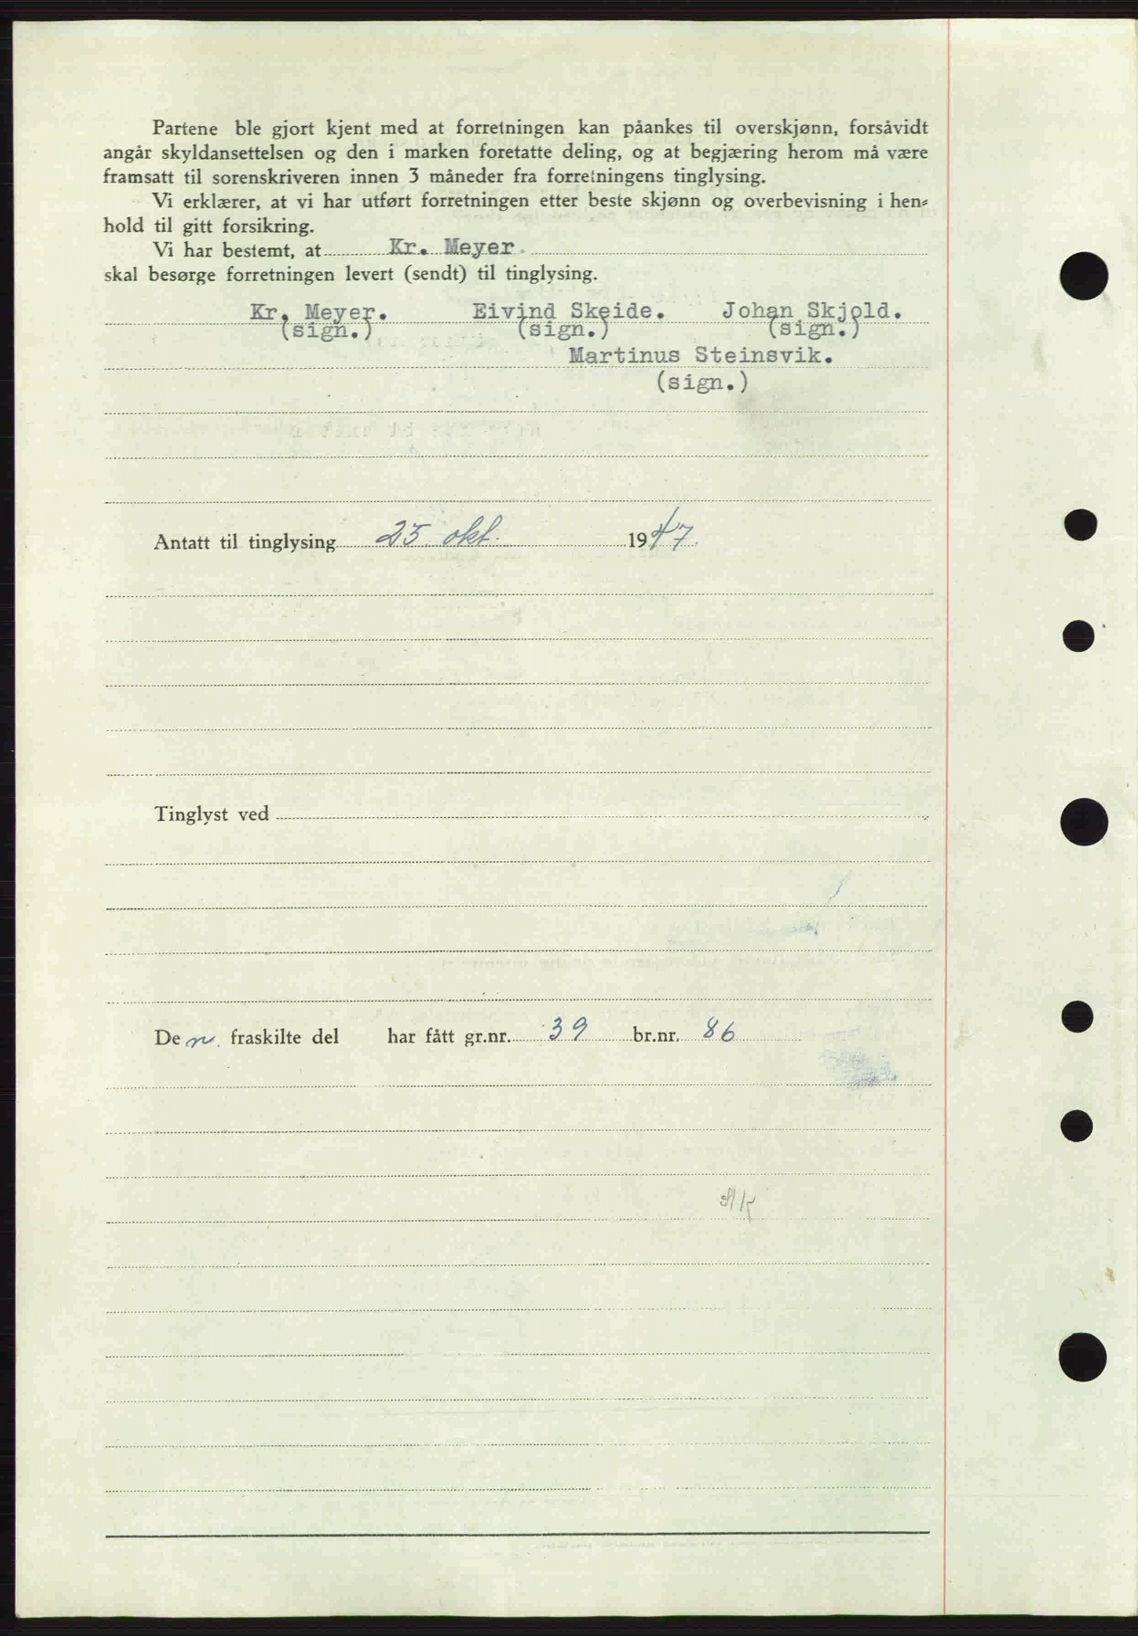 Partene ble gjort kjent med at forretningen kan påankes til overskjønn, forsåvidt
angår skyldansettelsen og den i marken foretatte deling, og at begjæring herom må være
framsatt til sorenskriveren innen 3 måneder fra forretningens tinglysing.
Vi erklærer, at vi har utført forretningen etter beste skjønn og overbevisning i hen-
hold til gitt forsikring.
Vi har bestemt, at Kr. Meyer
skal besørge forretningen levert (sendt) til tinglysing.
Kr. Meyer. Eivind Skeide. Johan Skjold.
(sign.) (sign.) (sign.)
Martinus Steinsvik.
(sign.)
Antatt til tinglysing 25. okt. 1947
Tinglyst ved
Den fraskilte del har fått gr.nr. 39 br.nr. 86